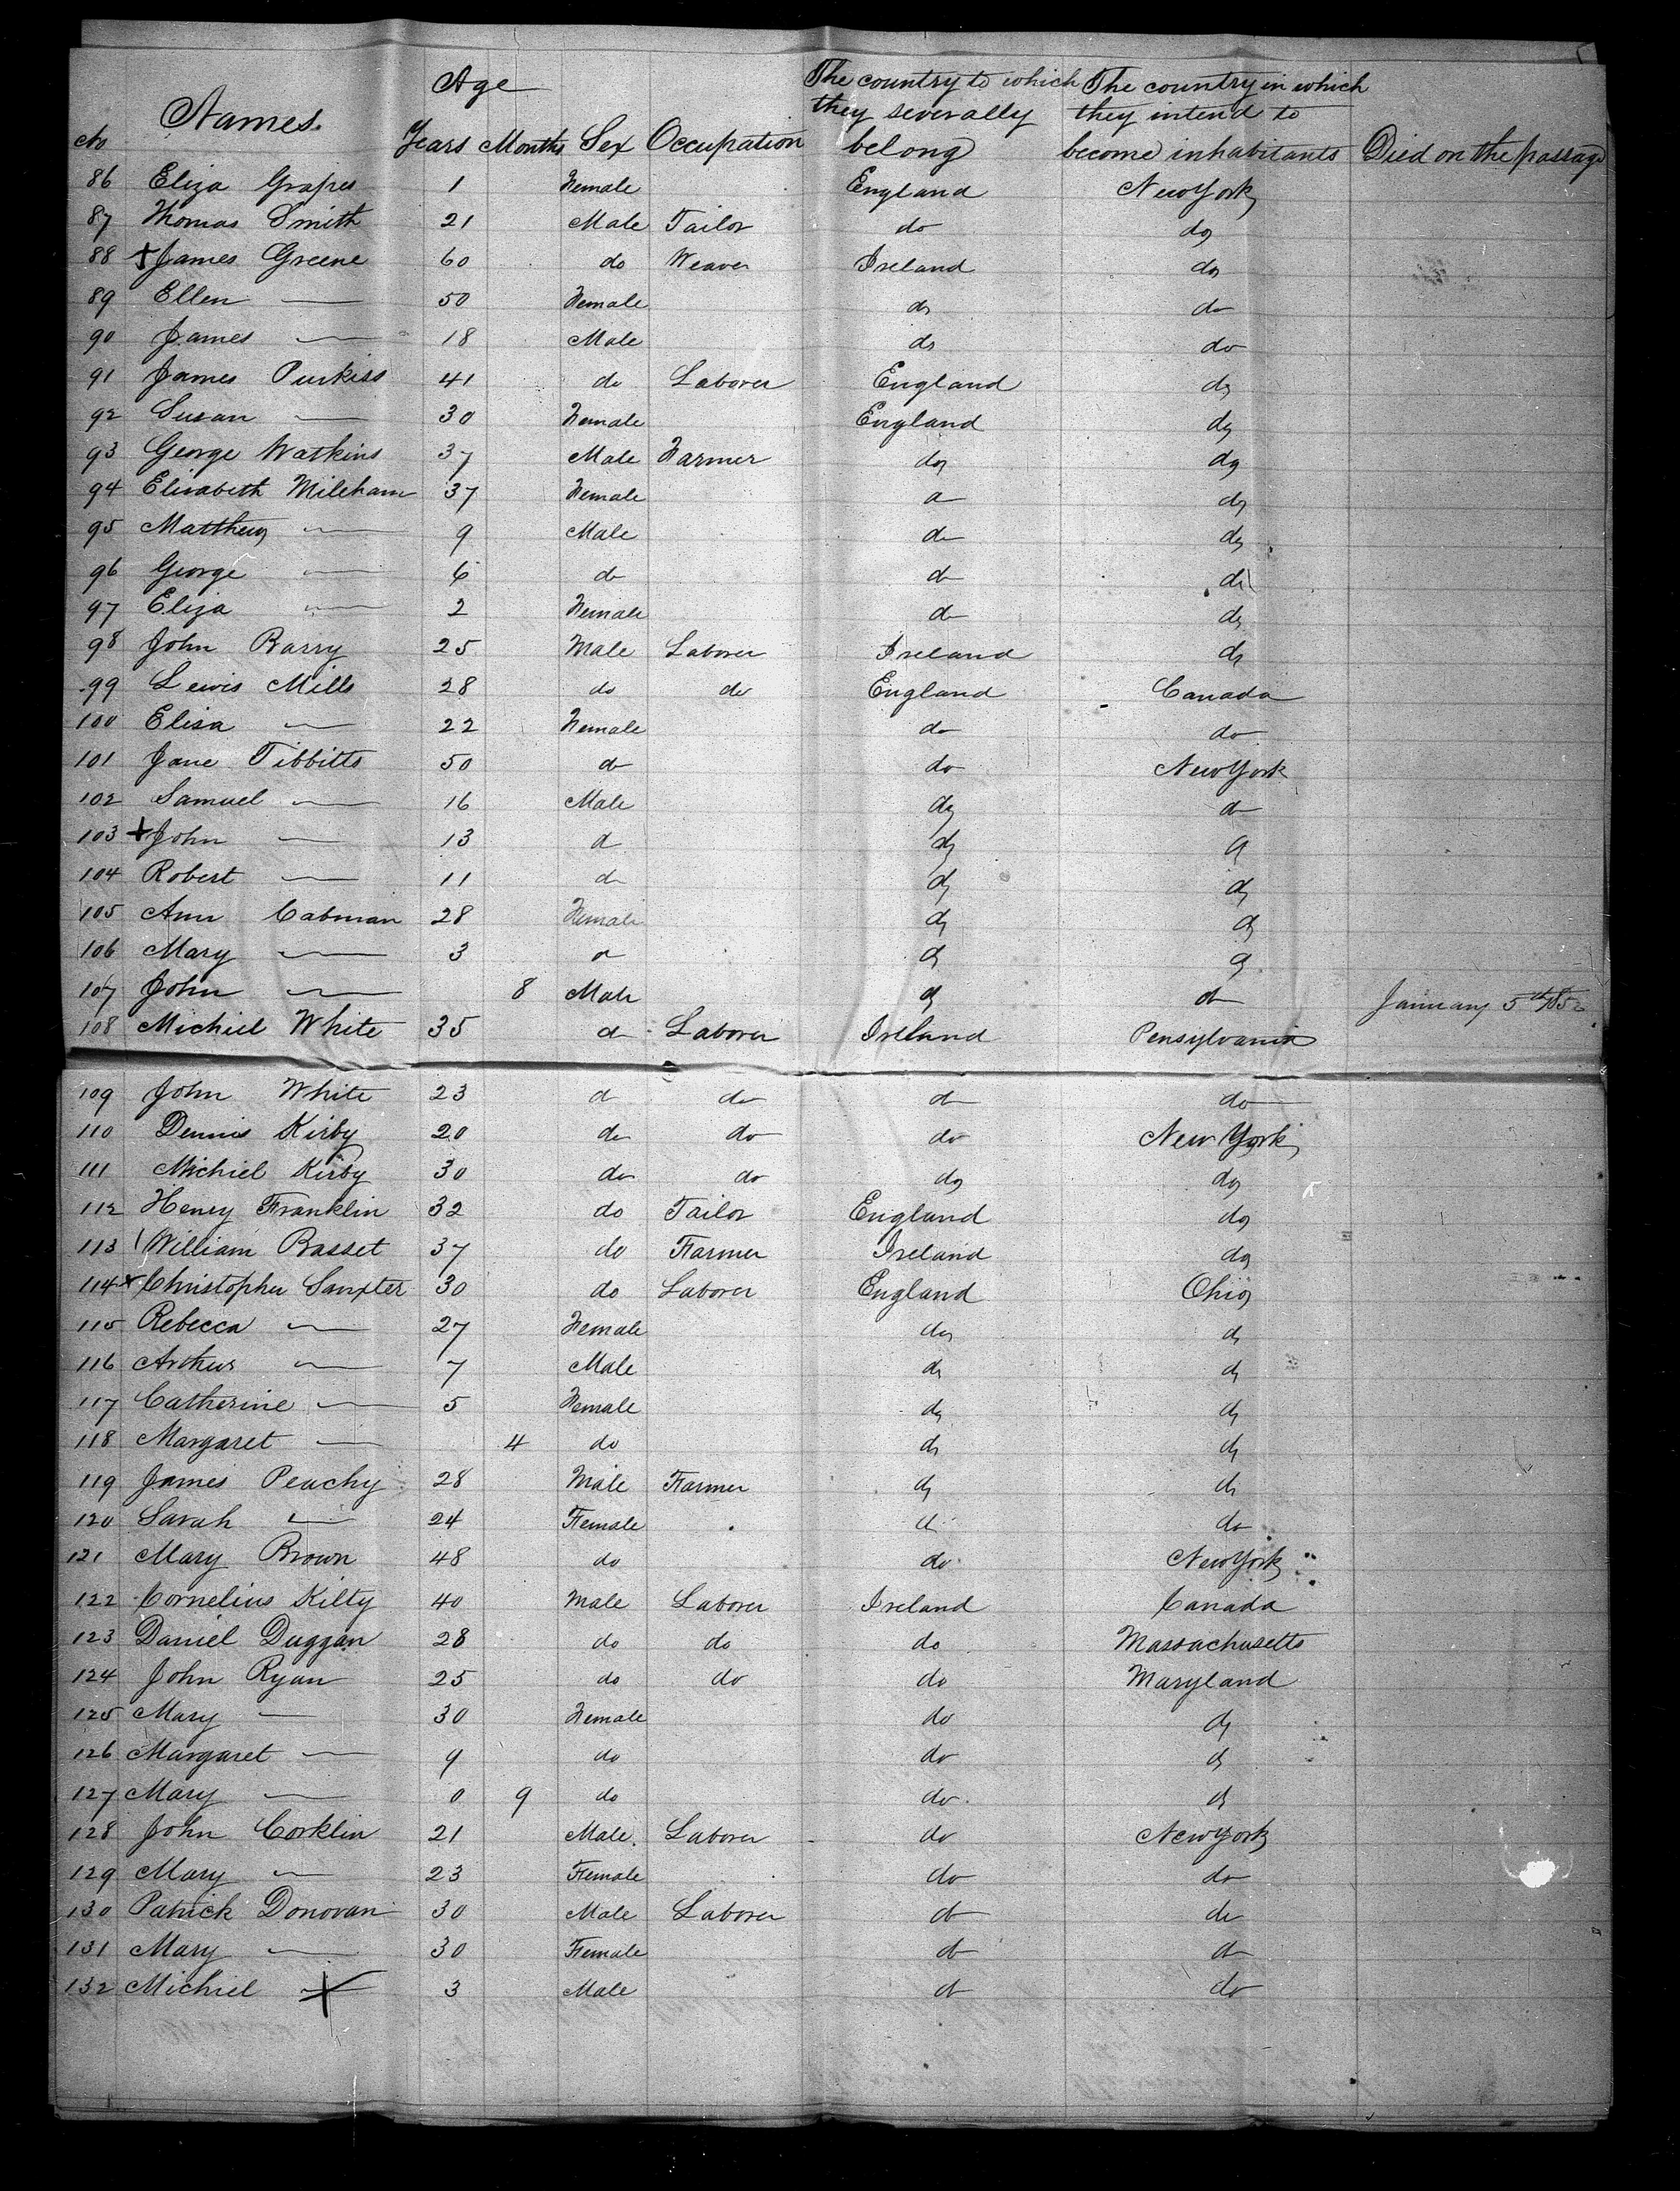 Age The country to which The country in which
Names. they severally they intend to
No Years Months Sex Occupation belong become inhabitants Died on the passage
86 Eliza Grapes 1 Female England New York
87 Thomas Smith 21 Male Tailor do do
88 +James Greene 60 do Weaver Ireland do
89 Ellen — 50 Female do do
90 James — 18 Male do do
91 James Purkiss 41 do Laborer England do
92 Susan — 30 Female England do
93 George Watkins 37 Male Farmer do do
94 Elisabeth Mileham 37 Female do do
95 Matthew — 9 Male do do
96 George — 6 do do do
97 Eliza — 2 Female do do
98 John Barry 25 Male Laborer Ireland do
99 Lewis Mills 28 do do England Canada
100 Elisa — 22 Female do do
101 Jane Tibbitts 50 do do New York
102 Samuel — 16 Male do do
103 +John — 13 do do do
104 Robert — 11 do do do
105 Ann Cabman 28 Female do do
106 Mary — 3 do do do
107 John — 8 Male do do January 5th
108 Michiel White 35 do Laborer Ireland Pensylvania
109 John White 23 do do do do
110 Dennis Kirby 20 do do do New York
111 Michiel Kirby 30 do do do do
112 Henry Franklin 32 do Tailor England do
113 William Basset 37 do Farmer Ireland do
114 x Christopher Sanxter 30 do Laborer England Ohio
115 Rebecca — 27 Female do do
116 Arthur — 7 Male do do
117 Catherine — 5 Female do do
118 Margaret — 4 do do do
119 James Peachy 28 Male Farmer do do
120 Sarah — 24 Female do do
121 Mary Brown 48 do do New York
122 Cornelius Kilty 40 Male Laborer Ireland Canada
123 Daniel Duggan 28 do do do Massachusetts
124 John Ryan 25 do do do Maryland
125 Mary — 30 Female do do
126 Margaret — 9 do do do
127 Mary — 0 9 do do do
128 John Corklin 21 Male Laborer do New York
129 Mary — 23 Female do do
130 Patrick Donovan 30 Male Laborer do do
131 Mary — 30 Female do do
132 Michiel — 3 Male do do